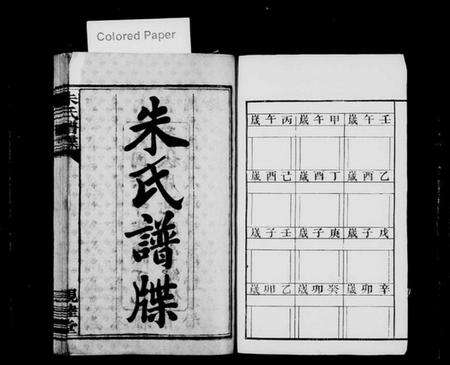 Colored Paper
朱氏譜牒
壬午歲 甲午歲 丙午歲
乙酉歲 丁酉歲 己酉歲
戊子歲 庚子歲 壬子歲
辛卯歲 癸卯歲 乙卯歲